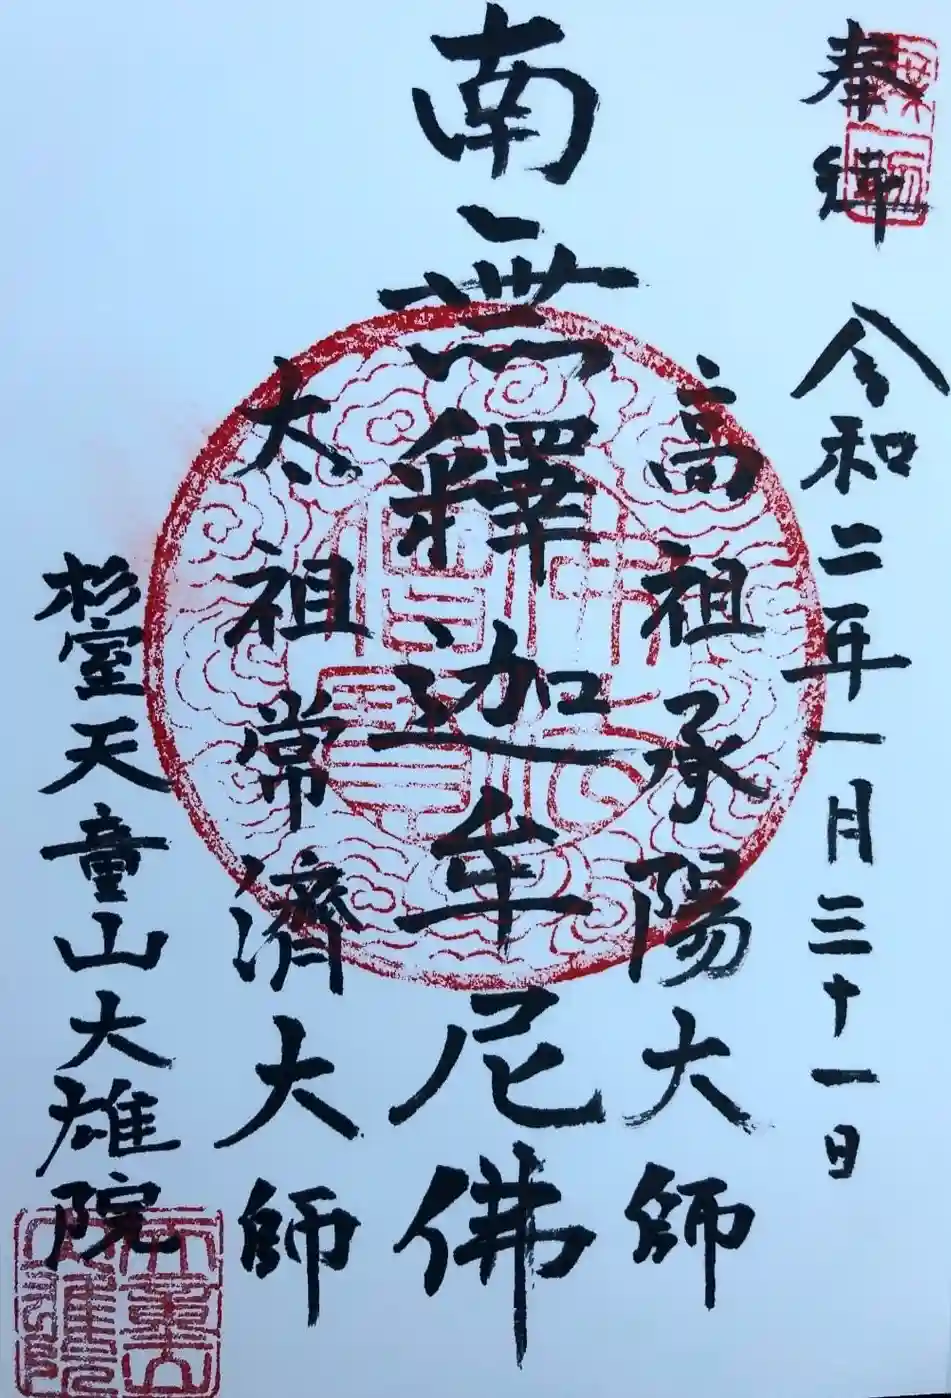 奉拝
令和二年一月三十一日
高祖承陽大師
南無釋迦牟尼佛
太祖常濟大師
杉室天童山大雄院